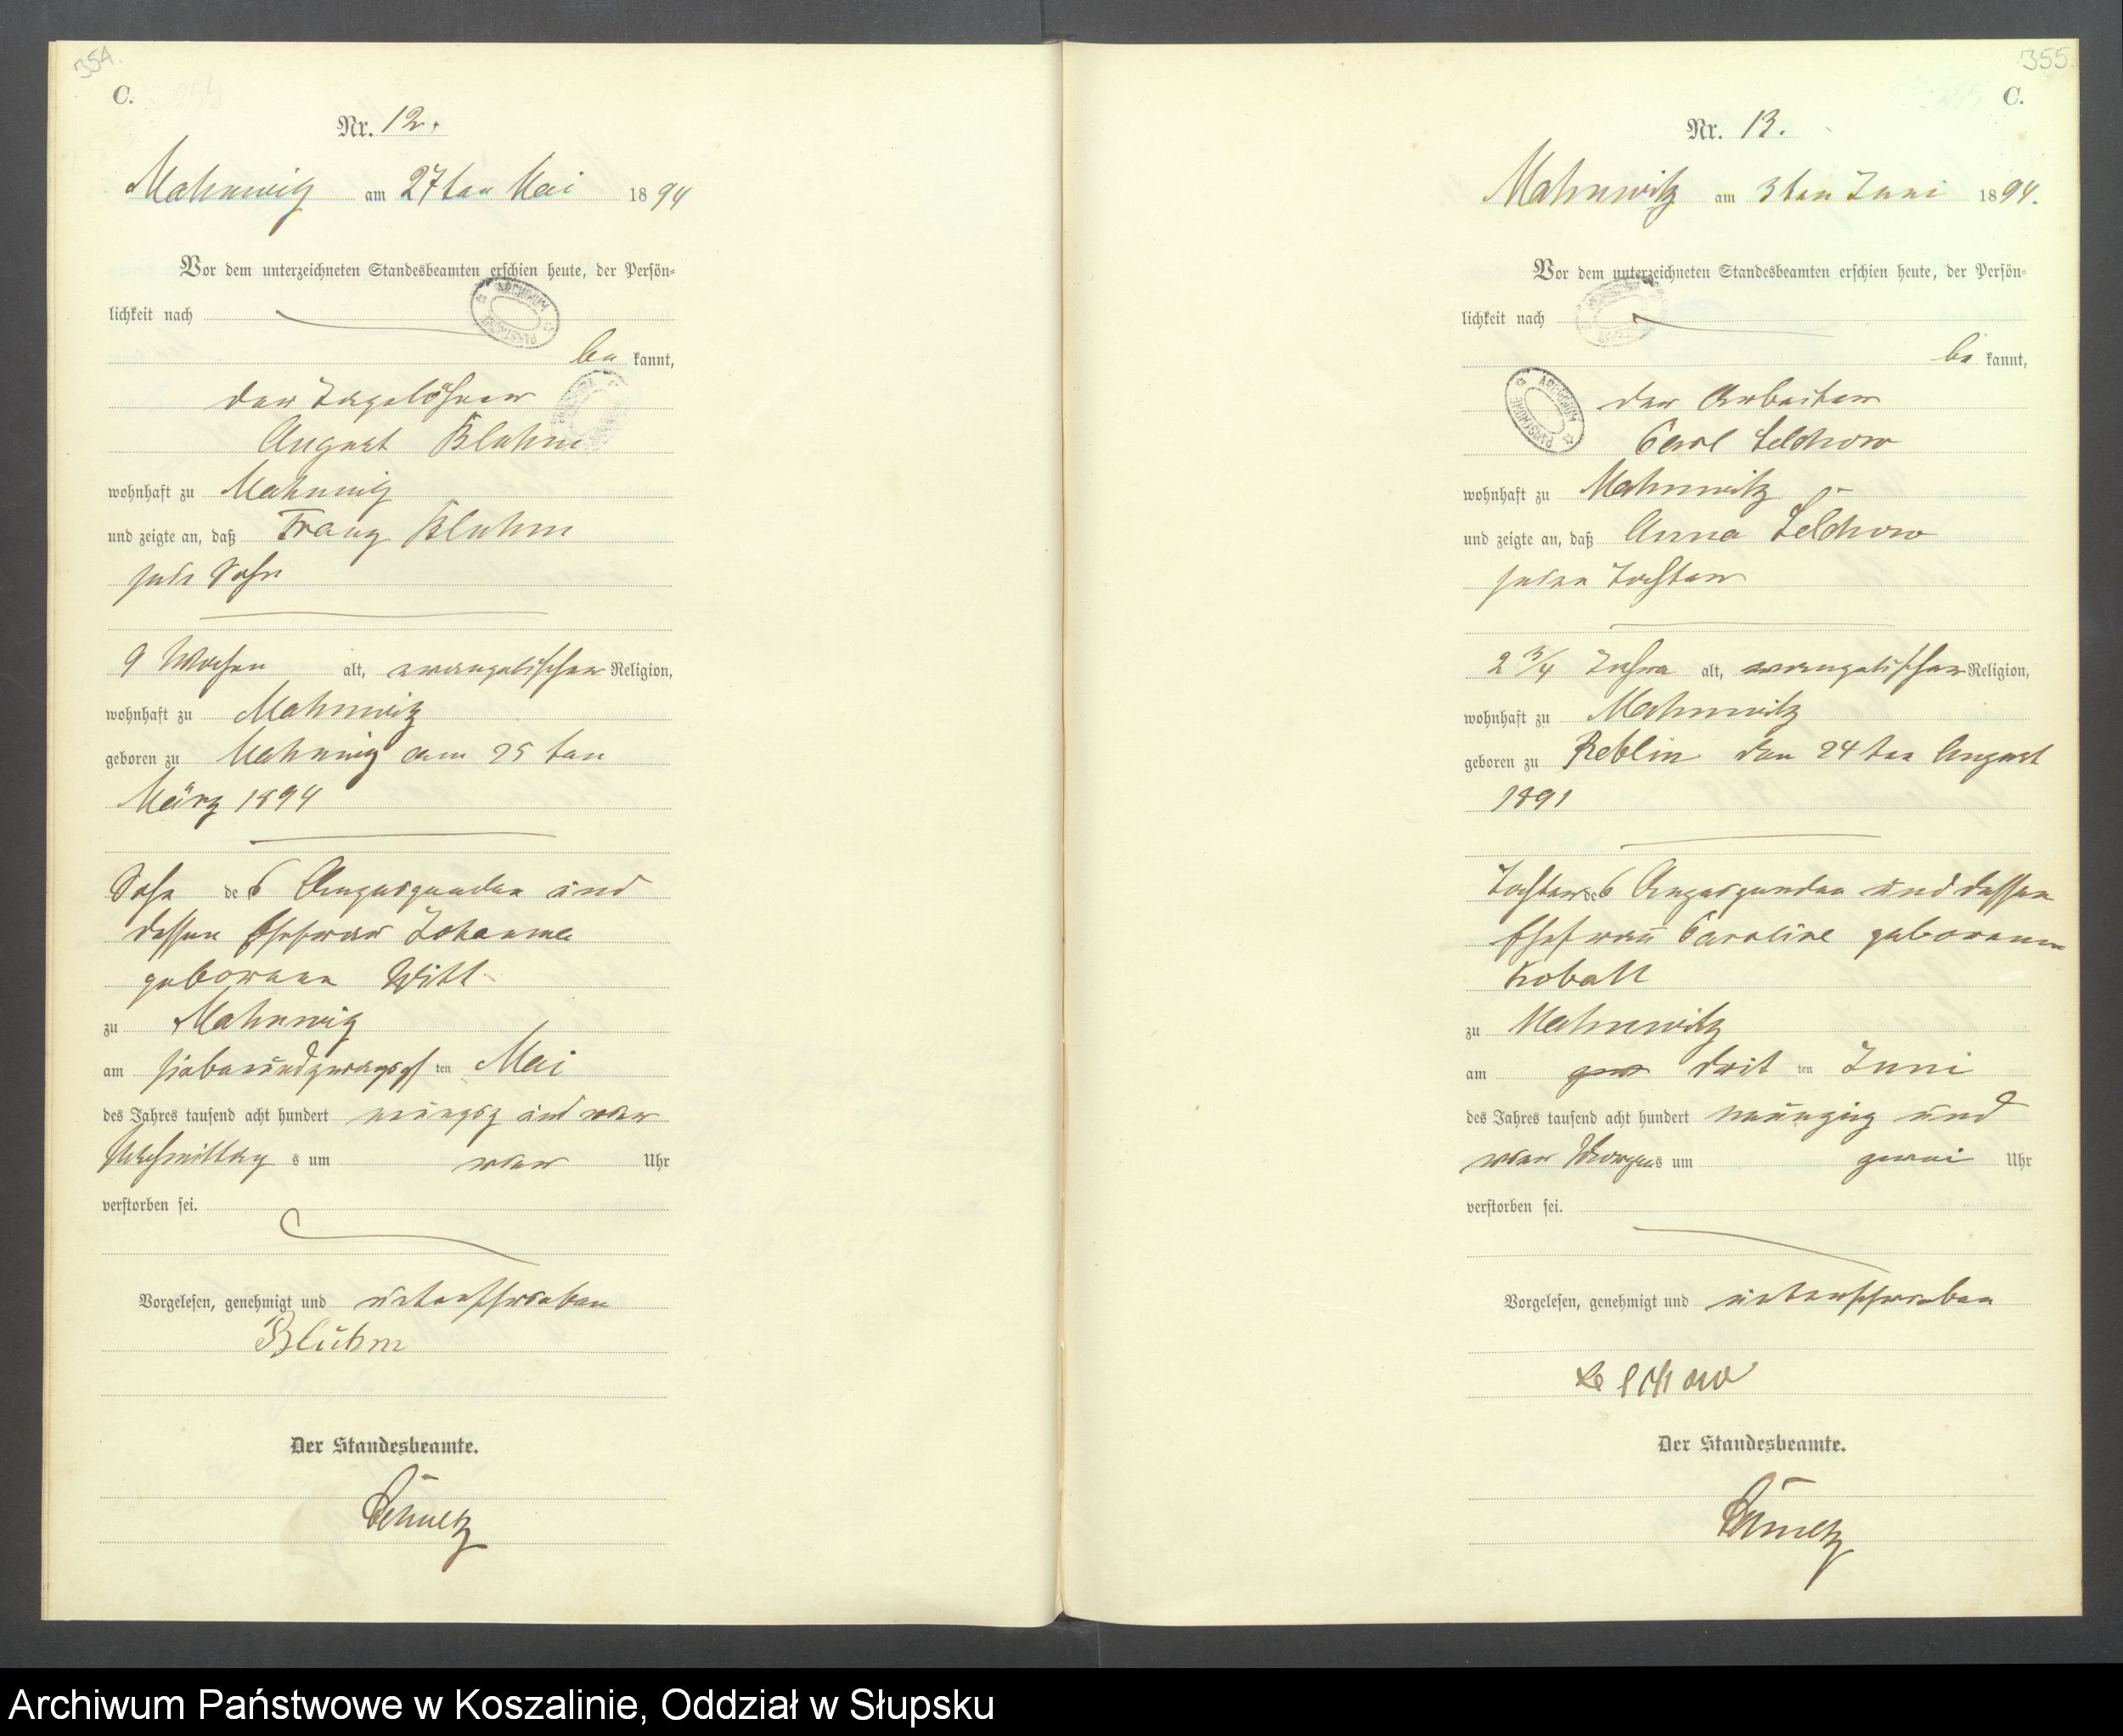 354.
C.
Nr. 12.
Mahnwitz am 27ten Mai 1894
Vor dem unterzeichneten Standesbeamten erschien heute, der Persön=
lichkeit nach
be kannt,
der Tagelöhner
August Bluhm
wohnhaft zu Mahnwitz
und zeigte an, daß Franz Bluhm
sein Sohn
9 Wochen alt, evangelischer Religion,
wohnhaft zu Mahnwitz
geboren zu Mahnwitz am 25 ten
März 1894
Sohn des Anzeigenden und
dessen Ehefrau Johanna
geborenen Witt
zu Mahnwitz
am siebenundzwanzigsten Mai
des Jahres tausend acht hundert neunzig und vier
Nachmittags um vier Uhr
verstorben sei.
Vorgelesen, genehmigt und unterschrieben
Bluhm
Der Standesbeamte.
355.
C.
Nr. 13.
Mahnwitz am 3ten Juni 1894.
Vor dem unterzeichneten Standesbeamten erschien heute, der Persön=
lichkeit nach
be kannt,
der Arbeiter
Carl Selchow
wohnhaft zu Mahnwitz
und zeigte an, daß Anna Selchow
seine Tochter
2 3/4 Jahre alt, evangelischer Religion,
wohnhaft zu Mahnwitz
geboren zu Reblin den 24ten August
1891
Tochter des Anzeigenden und dessen
Ehefrau Caroline geborenen
Kobatt
zu Mahnwitz
am dritten Juni
des Jahres tausend acht hundert neunzig und
vier Morgens um zwei Uhr
verstorben sei.
Vorgelesen, genehmigt und unterschrieben
Selchow
Der Standesbeamte.
Archiwum Państwowe w Koszalinie, Oddział w Słupsku